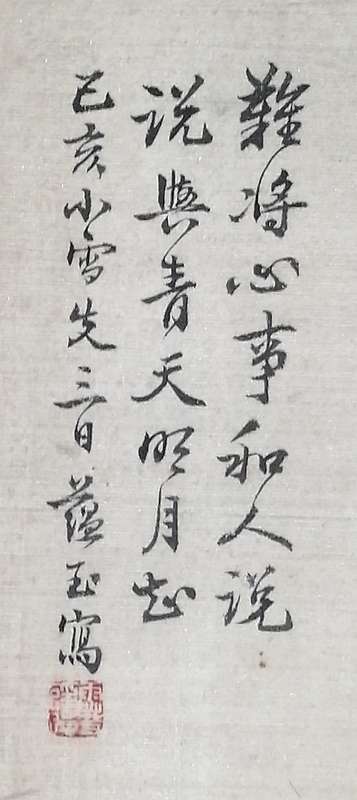 難将心事和人说
说與青天明月知
己亥小雪先三日蕴玉寫